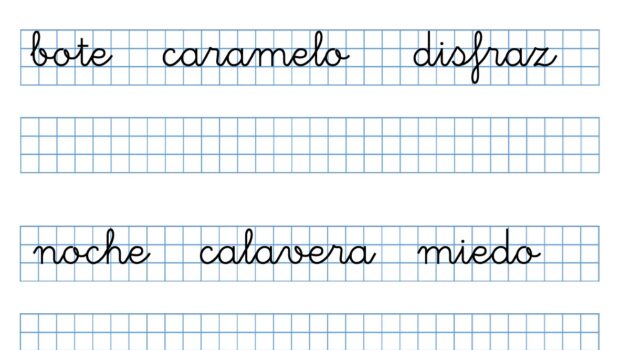 bote caramelo disfraz
noche calavera miedo